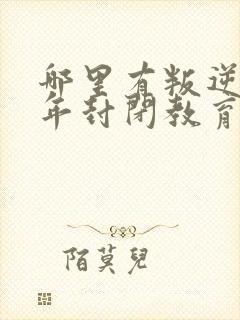 哪里有叛逆
年封闭教育
陌莫兒